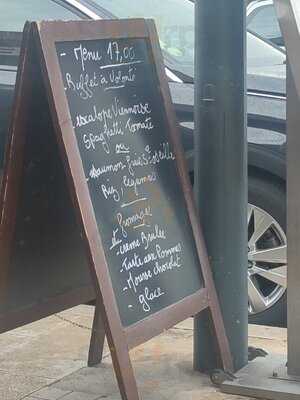 - Menu 17,00
- Buffet à Volonté
- escalope Viennoise
Spaghetti Tomate
ou
- saumon
Riz, légumes
- fromage
et
- crème Brulée
- Tarte aux Pommes
- Mousse chocolat
- glace